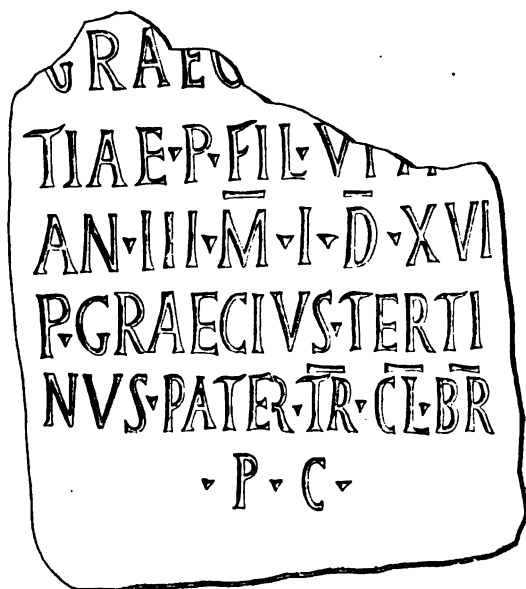 GRAEC
TIAE·P·FIL·VI
AN·III·M̄·I·D̄·XVI
P·GRAECIVS·TERTI
NVS·PATER·T̄R̄·C̄L̄·B̄R̄
·P·C·